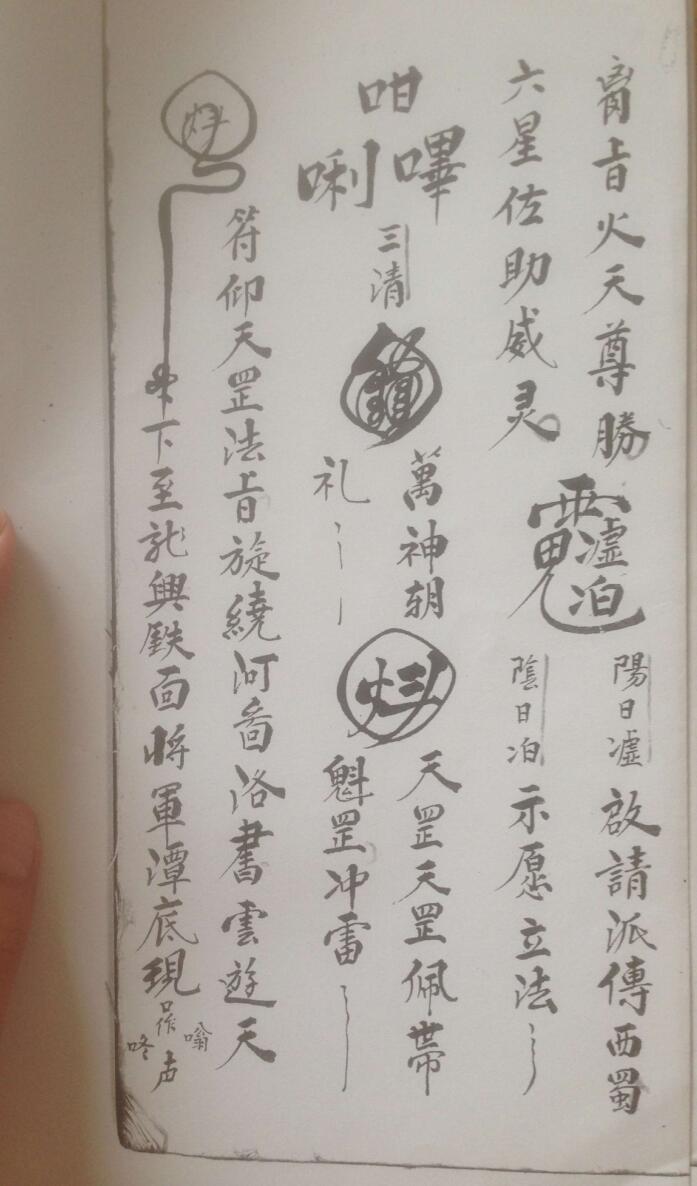 上旨火天尊勝
六星佐助威灵
魒
虚
泊
陽日虚
陰日泊
啟請派傳西蜀
示愿立法
咁
嗶
唎
三清
萬神朝
礼
天罡天罡佩帶
魁罡冲雷
符仰天罡法旨旋繞河啚洛書雲遊天
下至龙興鉄面將軍潭底現
作
嗡
咚
声